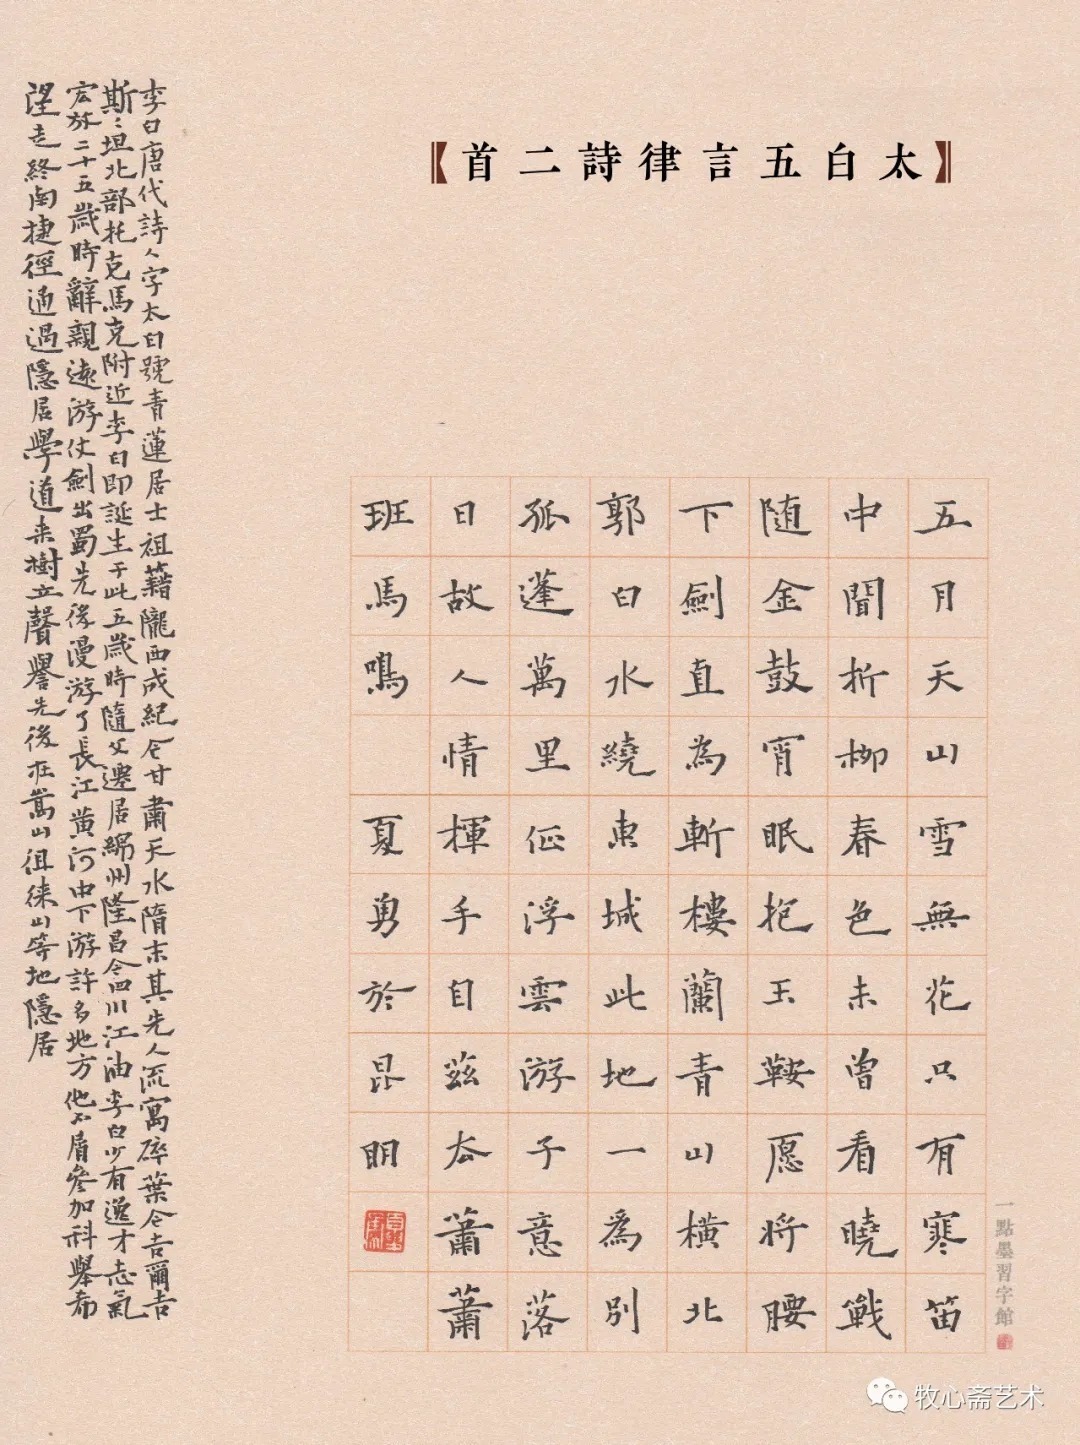 【太白五言律詩二首】
五月天山雪無花只有寒笛
中聞折柳春色未曾看曉戰
随金鼓宵眠抱玉鞍愿将腰
下劍直為斬樓蘭青山橫北
郭白水繞東城此地一爲別
孤蓬萬里征浮雲游子意落
日故人情揮手自茲去蕭蕭
班馬鳴 夏勇於昆明
李白唐代詩人字太白號青蓮居士祖籍隴西成紀今甘肅天水隋末其先人流寓碎葉今吉爾吉
斯〻坦北部托克馬克附近李白即誕生于此五歲時隨父遷居綿州隆昌今四川江油李白少有逸才志氣
宏放二十五歲時辭親遠游仗劍出蜀先後漫游了長江黃河中下游許多地方他不屑參加科舉希
望走終南捷徑通過隱居學道来樹立聲譽先後在嵩山徂徠山等地隱居
一點墨習字館
牧心斋艺术